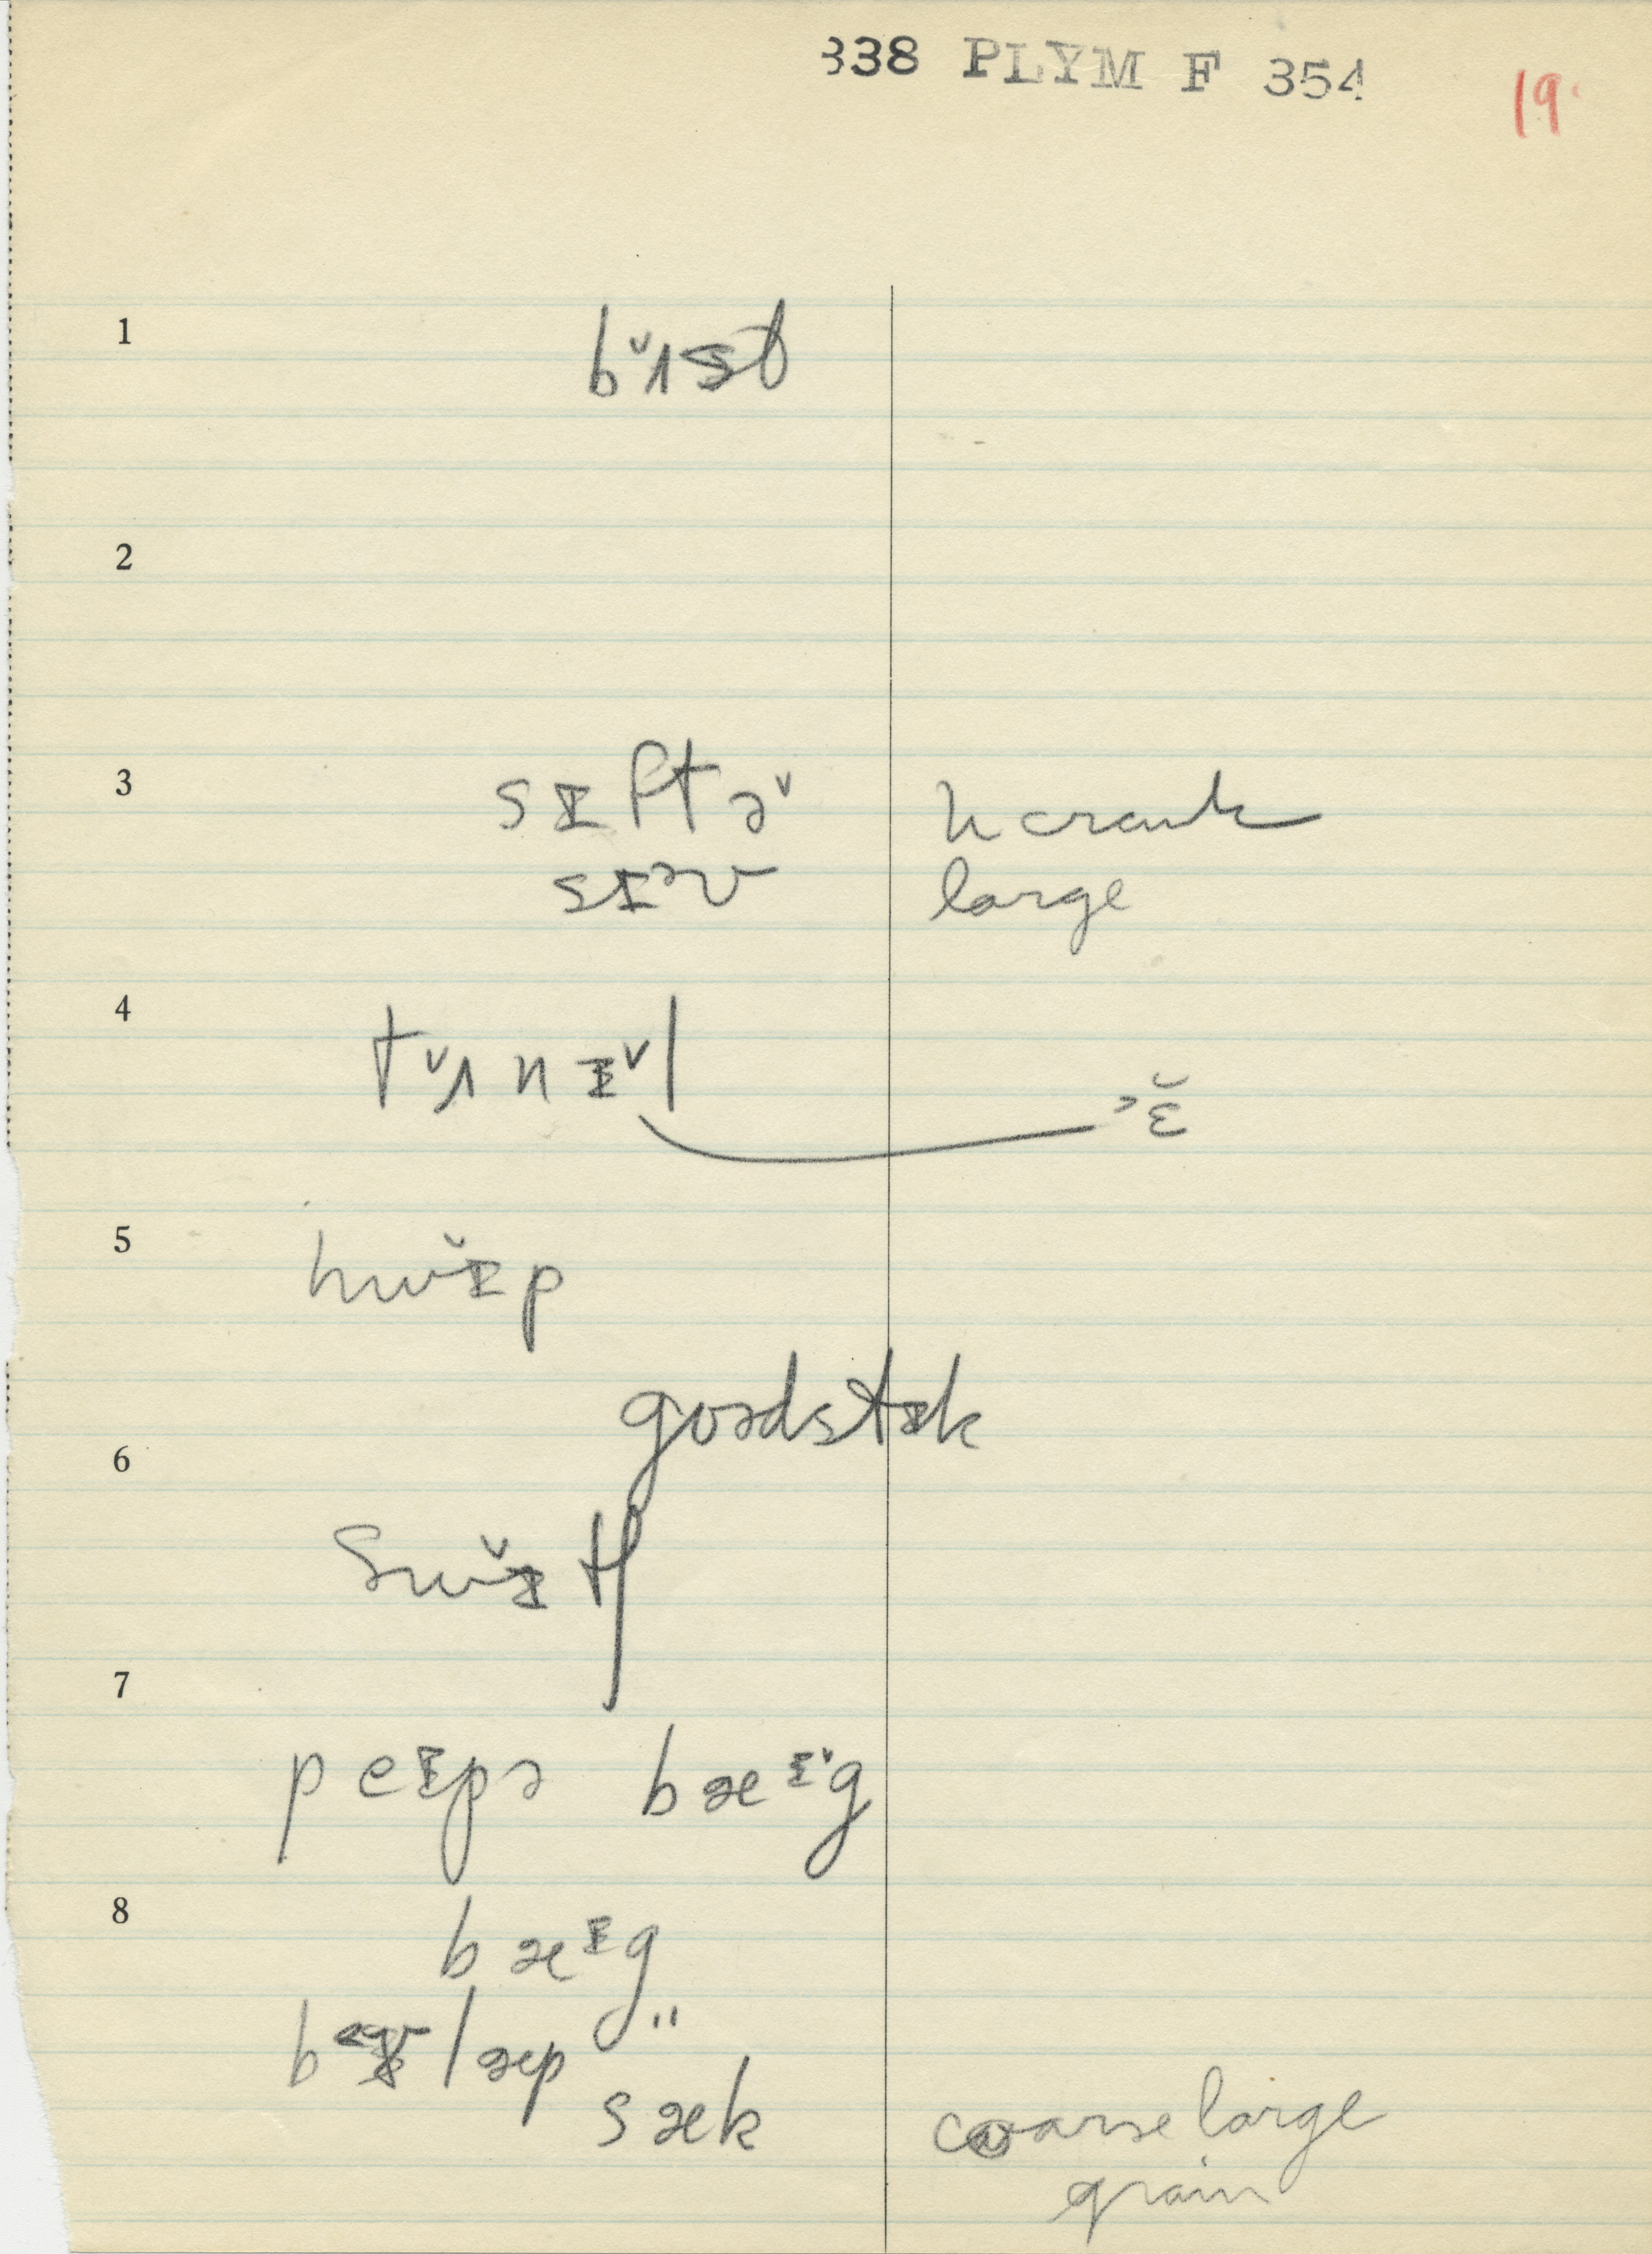 338 PLYM F 354 19.
1 bɪ̌st
2
3 sɪftə˅ h crank
sɪᵊv large
4 t˅ʌnɪ˅l >ɛ̆
5 hwɪ̌p
goədstɪk
6
Swɪ̌tʃ
7
peɪpə bæᶦ˅g
8
bæᶦg
læp "
sæk coarse large
grain